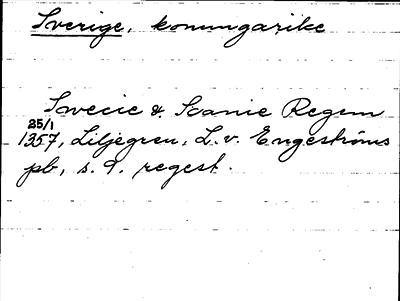 Sverige, konungarike
Swecie & Scanie Regem
25/1
1357, Liljegren, L. v. Engeströms
pb, s. 9. regest.